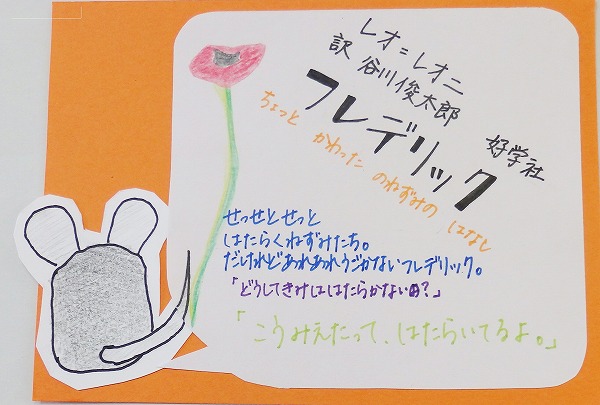 レオ=レオニ
訳 谷川俊太郎
フレデリック
好学社
ちょっと かわった のねずみの はなし
せっせとせっと
はたらくねずみたち。
だけれどあれあれうごかないフレデリック。
「どうしてきみははたらかないの?」
「こうみえたって、はたらいてるよ。」